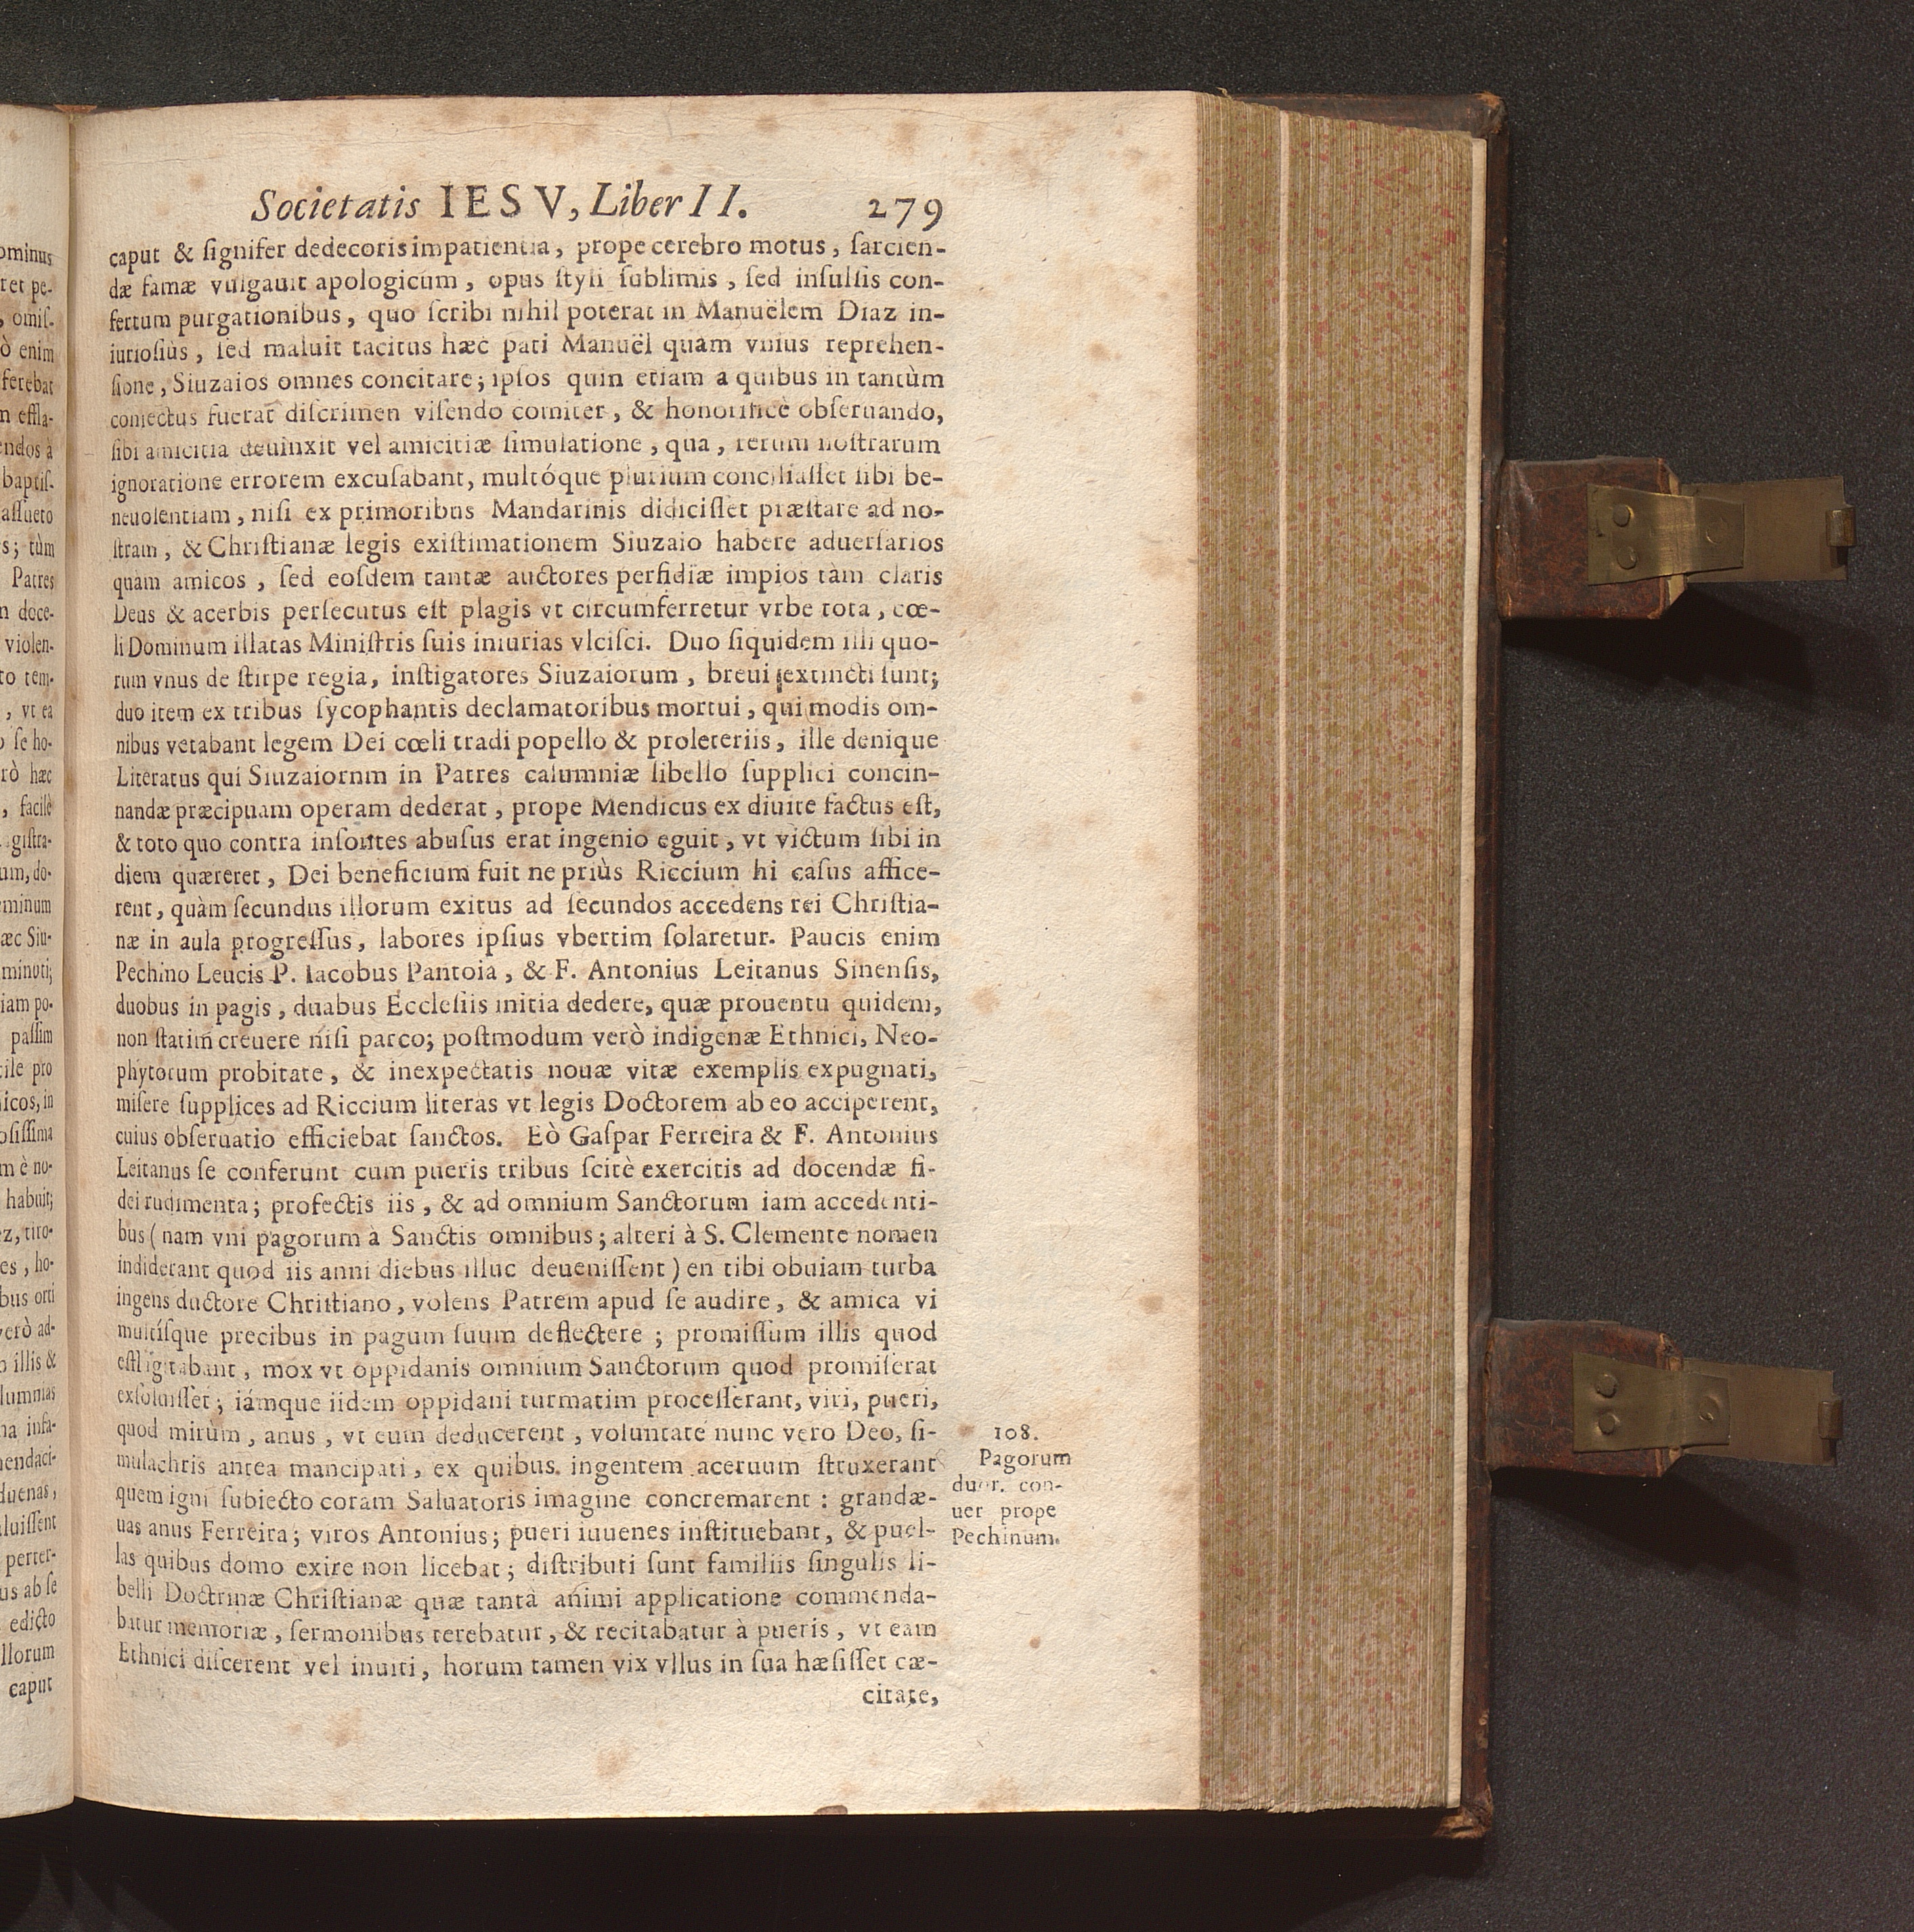 Societatis IESV, Liber II. 279
caput & ſignifer dedecoris impatientia, prope cerebro motus, ſarcien-
dæ famæ vulgauit apologicum, opus ſtyli ſublimis, ſed inſulſis con-
fertum purgationibus, quo ſcribi nihil poterat in Manuëlem Diaz in-
iuriosiùs, ſed maluit tacitus hæc pati Manuël quàm vnius reprehen-
ſione, Siuzaios omnes concitare; ipſos quin etiam a quibus in tantùm
coniectus fuerat diſcrimen viſendo comiter, & honorificè obſeruando,
ſibi amicitia deuinxit vel amicitiæ ſimulatione, qua, rerum noſtrarum
ignoratione errorem excuſabant, multóque plurium conciliaſſet ſibi be-
neuolentiam, niſi ex primoribus Mandarinis didiciſſet præſtare ad no-
ſtram, & Chriſtianæ legis exiſtimationem Siuzaio habere aduerſarios
quàm amicos, ſed eoſdem tantæ auctores perfidiæ impios tàm claris
Deus & acerbis perſecutus eſt plagis vt circumferretur vrbe tota, cœ-
li Dominum illatas Miniſtris ſuis iniurias vlciſci. Duo ſiquidem illi quo-
rum vnus de ſtirpe regia, inſtigatores Siuzaiorum, breui extincti ſunt;
duo item ex tribus ſycophantis declamatoribus mortui, qui modis om-
nibus vetabant legem Dei cœli tradi popello & proleteriis, ille denique
Literatus qui Siuzaiornm in Patres calumniæ libello ſupplici concin-
nandæ præcipuam operam dederat, prope Mendicus ex diuite factus eſt,
& toto quo contra inſontes abuſus erat ingenio eguit, vt victum ſibi in
diem quæreret, Dei beneficium fuit ne priùs Riccium hi caſus affice-
rent, quàm ſecundus illorum exitus ad ſecundos accedens rei Chriſtia-
næ in aula progreſſus, labores ipſius vbertim ſolaretur. Paucis enim
Pechino Leucis P. Iacobus Pantoia, & F. Antonius Leitanus Sinenſis,
duobus in pagis, duabus Eccleſiis initia dedere, quæ prouentu quidem,
non ſtatim creuere niſi parco; poſtmodum verò indigenæ Ethnici, Neo-
phytorum probitate, & inexpectatis nouæ vitæ exemplis expugnati,
miſere ſupplices ad Riccium literas vt legis Doctorem ab eo acciperent,
cuius obſeruatio efficiebat ſanctos. Eò Gaſpar Ferreira & F. Antonius
Leitanus ſe conferunt cum pueris tribus ſcitè exercitis ad docendæ fi-
dei rudimenta; profectis iis, & ad omnium Sanctorum iam accedenti-
bus (nam vni pagorum à Sanctis omnibus; alteri à S. Clemente nomen
indiderant quod iis anni diebus illuc deueniſſent) en tibi obuiam turba
ingens ductore Chriſtiano, volens Patrem apud ſe audire, & amica vi
multíſque precibus in pagum ſuum deflectere; promiſſum illis quod
efflagitabant, mox vt oppidanis omnium Sanctorum quod promiſerat
exſoluiſſet; iámque iidem oppidani turmatim proceſſerant, viri, pueri,
quod mirùm, anus, vt eum deducerent, voluntate nunc vero Deo, ſi-
mulachris antea mancipati, ex quibus ingentem aceruum ſtruxerant
quem igni ſubiecto coram Saluatoris imagine concremarent: grandæ-
uas anus Ferreira; viros Antonius; pueri iuuenes inſtituebant, & puel-
las quibus domo exire non licebat; diſtributi ſunt familiis ſingulis li-
belli Doctrinæ Chriſtianæ quæ tantâ animi applicatione commenda-
batur memoriæ, ſermonibus terebatur, & recitabatur à pueris, vt eam
Ethnici diſcerent vel inuiti, horum tamen vix vllus in ſua hæſiſſet cæ-
citate,
108.
Pagorum
duor. con-
uer prope
Pechinum.
ominus
ret pe-
, omiſ-
ò enim
ferebat
n effla-
endos à
baptiſ-
aſſueto
s; tùm
Patres
n doce-
violen-
to tem-
, vt ea
o ſe ho-
rò hæc
, facilè
giſtra-
um, do-
minum
æc Siu-
minuti;
iam po-
paſſim
cile pro
icos, in
oſiſſima
m è no-
habuit;
z, tiro-
es, ho-
bus orti
verò ad-
o illis &
lumnias
na infa-
mendaci-
duenas,
luiſſent
perter-
us ab ſe
edicto
llorum
caput